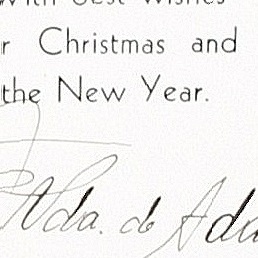 with best wishes
r Christmas and
the New Year.
Alda. de Ada